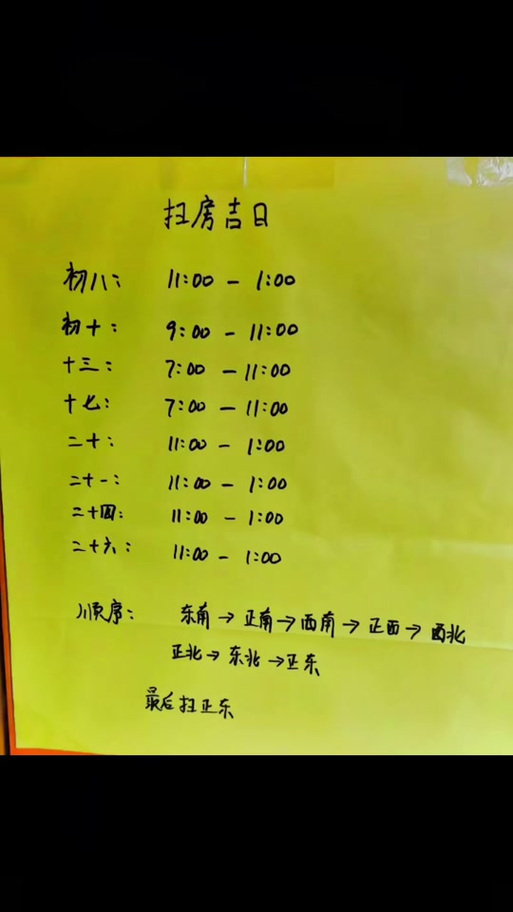 扫房吉日
初八: 11:00 - 1:00
初十: 9:00 - 11:00
十三: 7:00 - 11:00
十七: 7:00 - 11:00
二十: 11:00 - 1:00
二十一: 11:00 - 1:00
二十四: 11:00 - 1:00
二十六: 11:00 - 1:00
顺序: 东南→正南→西南→正西→西北
正北→东北→正东
最后扫正东